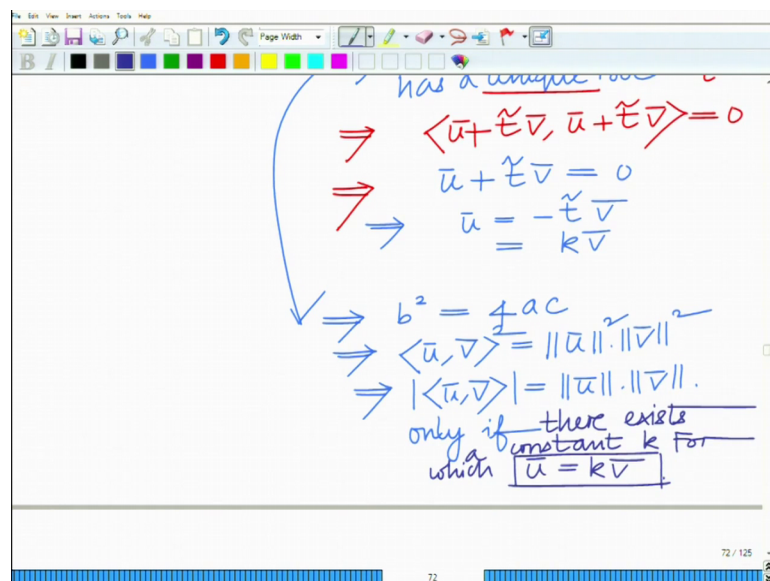 File Edit View Insert Actions Tools Help
Page Width
B I
has a unique
⇒ <ū + t̃ v̄, ū + t̃ v̄> = 0
⇒ ū + t̃ v̄ = 0
⇒ ū = - t̃ v̄
= k v̄
⇒ b² = 4ac
⇒ <ū, v̄>² = ||ū||² · ||v̄||²
⇒ |<ū, v̄>| = ||ū|| · ||v̄||.
only if there exists
a constant k for
which ū = k v̄
72 / 125
72